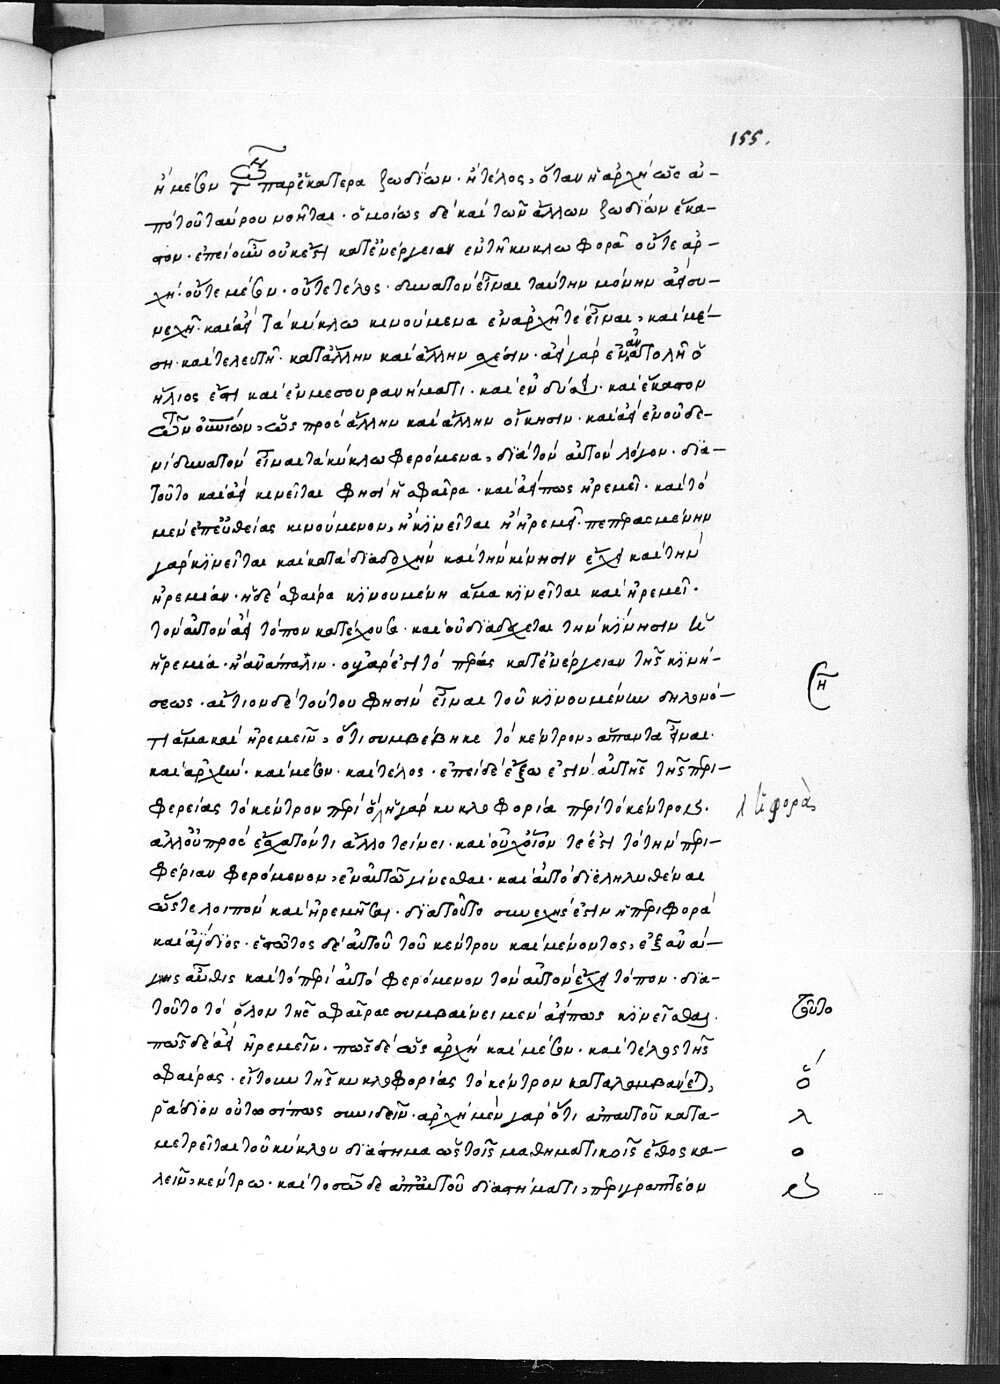 155.
ἢ μέσον τῶν παρ' ἑκάτερα ζωδίων· ἢ τέλος, ὅταν ἡ ἀρχὴ ὡς ἀ-
πὸ τοῦ ταύρου νοῆται· ὁμοίως δὲ καὶ τῶν ἄλλων ζωδίων ἕκα-
στον· ἐπεὶ οὖν οὐκ ἔστι κατ' ἐνέργειαν ἐν τῇ κύκλω φορᾶ οὔτε ἀρ-
χὴ· οὔτε μέσον· οὔτε τέλος· δυνατὸν εἶναι ταύτην μόνην ἀεὶ συ-
νεχῆ· καὶ ἀεὶ τὰ κύκλω κινούμενα ἐν ἀρχῆ τὲ εἶναι, καὶ μέ-
ση· καὶ τελευτῆ· κατ' ἄλλην καὶ ἄλλην σχέσιν· ἀεὶ γὰρ ἐν ἀνατολῆ ὁ
ἥλιος ἐστὶ καὶ ἐν μεσουρανήματι· καὶ ἐν δύσει· καὶ ἕκαστον
τῶν σημείων, ὡς πρὸς ἄλλην καὶ ἄλλην οἴκησιν· καὶ ἀεὶ ἐν οὐδε-
νὶ δυνατὸν εἶναι τὰ κύκλω φερόμενα, διὰ τὸν αὐτὸν λόγον· δια-
τοῦτο καὶ ἀεὶ κινεῖται φησὶ ἡ σφαῖρα· καὶ ἀεί πως ἠρεμεῖ· καὶ τὸ
μὲν ἐπ' εὐθείας κινούμενον, ἢ κινεῖται ἢ ἠρεμεῖ· πεπερασμένην
γὰρ κινεῖται καὶ κατὰ διαδοχὴν καὶ τὴν κίνησιν ἔχει καὶ τὴν
ἠρεμίαν· ἡ δὲ σφαίρα κινουμένη ἅμα κινεῖται καὶ ἠρεμεῖ·
τὸν αὐτὸν ἀεὶ τόπον κατέχουσα· καὶ οὐ διαδέχεται τὴν κίνησιν ἡ
ἠρεμία· ἢ ἀνάπαλιν· οὐ γάρ ἐστι τὸ πέρας κατ' ἐνέργειαν τῆς κινή-
σεως· αἴτιον δὲ τούτου φησὶν εἶναι τοῦ κινουμένην δηλονό-
τι ἅμα καὶ ἠρεμεῖν, ὅτι συμβέβηκε τὸ κέντρον, ἅπαντα εἶναι·
καὶ ἀρχὴν· καὶ μέσον· καὶ τέλος· ἐπεὶ δὲ ἔξω ἐστὶν αὐτῆς τῆς περι-
φερείας τὸ κέντρον περὶ ὃ, ἡ γὰρ κυκλοφορία περὶ τὸ κέντρον·
ἀλλ' οὐ πρὸς ἔσχατόν τι ἀλλοτείνει· καὶ οὐχ οἷόν τέ ἐστι τὸ τὴν περι-
φέρειαν φερόμενον, ἐν αὐτῶ γίνεσθαι· καὶ αὐτὸ διεληλυθέναι
ὥστε λοιπὸν καὶ ἠρεμῆσαι· διατοῦτο συνεχής ἐστιν ἡ περιφορὰ
καὶ ἀΐδιος· ἑστῶτος δὲ αὐτοῦ τοῦ κέντρου καὶ μένοντος, ἐξ ἀνάγ-
κης αὖθις καὶ τὸ περὶ αὐτὸ φερόμενον τὸν αὐτὸν ἔχει τόπον· δια-
τοῦτο τὸ ὅλον τῆς σφαίρας συμβαίνει μὲν ἀεί πως κινεῖσθαι·
πῶς δὲ ἀεὶ ἠρεμεῖν· πῶς δὲ ὡς ἀρχὴ καὶ μέσον· καὶ τέλος τῆς
σφαίρας· εἴτουν τῆς κυκλοφορίας τὸ κέντρον καταλαμβάνεται,
ῥᾴδιον οὑτωσί πως συνιδεῖν· ἀρχὴ μὲν γὰρ ὅτι ἀπ' αὐτοῦ κατα-
μετρεῖται τοῦ κύκλου διάστημα ὡς τοῖς μαθηματικοῖς ἔθος κα-
λεῖν, κέντρω· καὶ τοσῶδε ἀπ' αὐτοῦ διαστήματι, περιγραπτέον
τοῦτο
ὅ
λ
ο